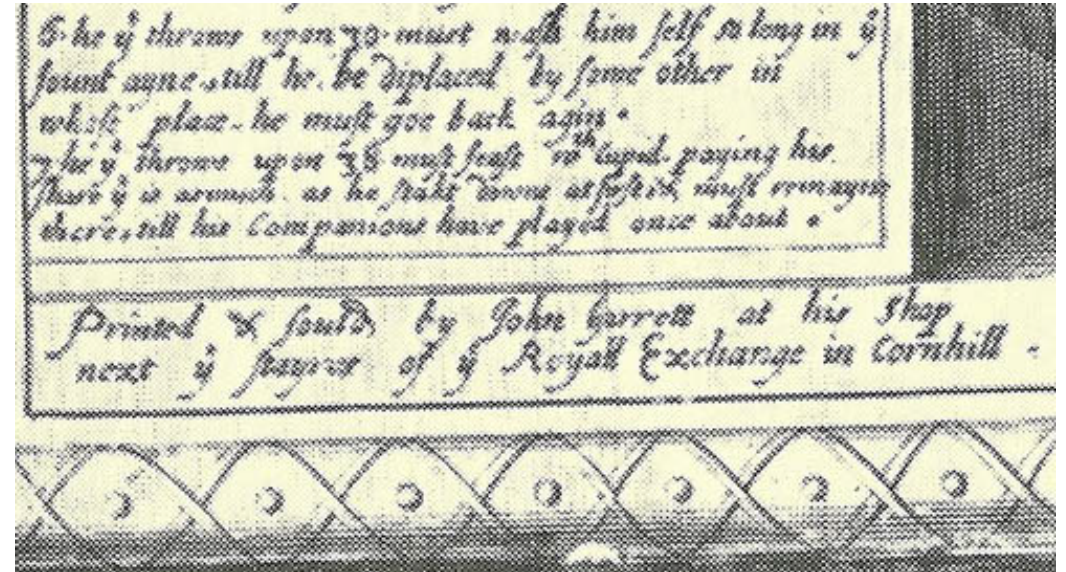 6. he yͭ throws upon 30 must wash him self so long in yͤ
fountayne, still he be diplaced by some other in
whose place he must goe back agin.
7 he yͭ throws upon 38 must feast wͭͪ Cupid. paying his
share yͭ is asmuch as he stakt downe at first, must remayne
there, till his Companions have played once about.
Printed & sould by John Garrett at his Shop
next yͤ stayres of yͤ Royall Exchange in Cornhill.